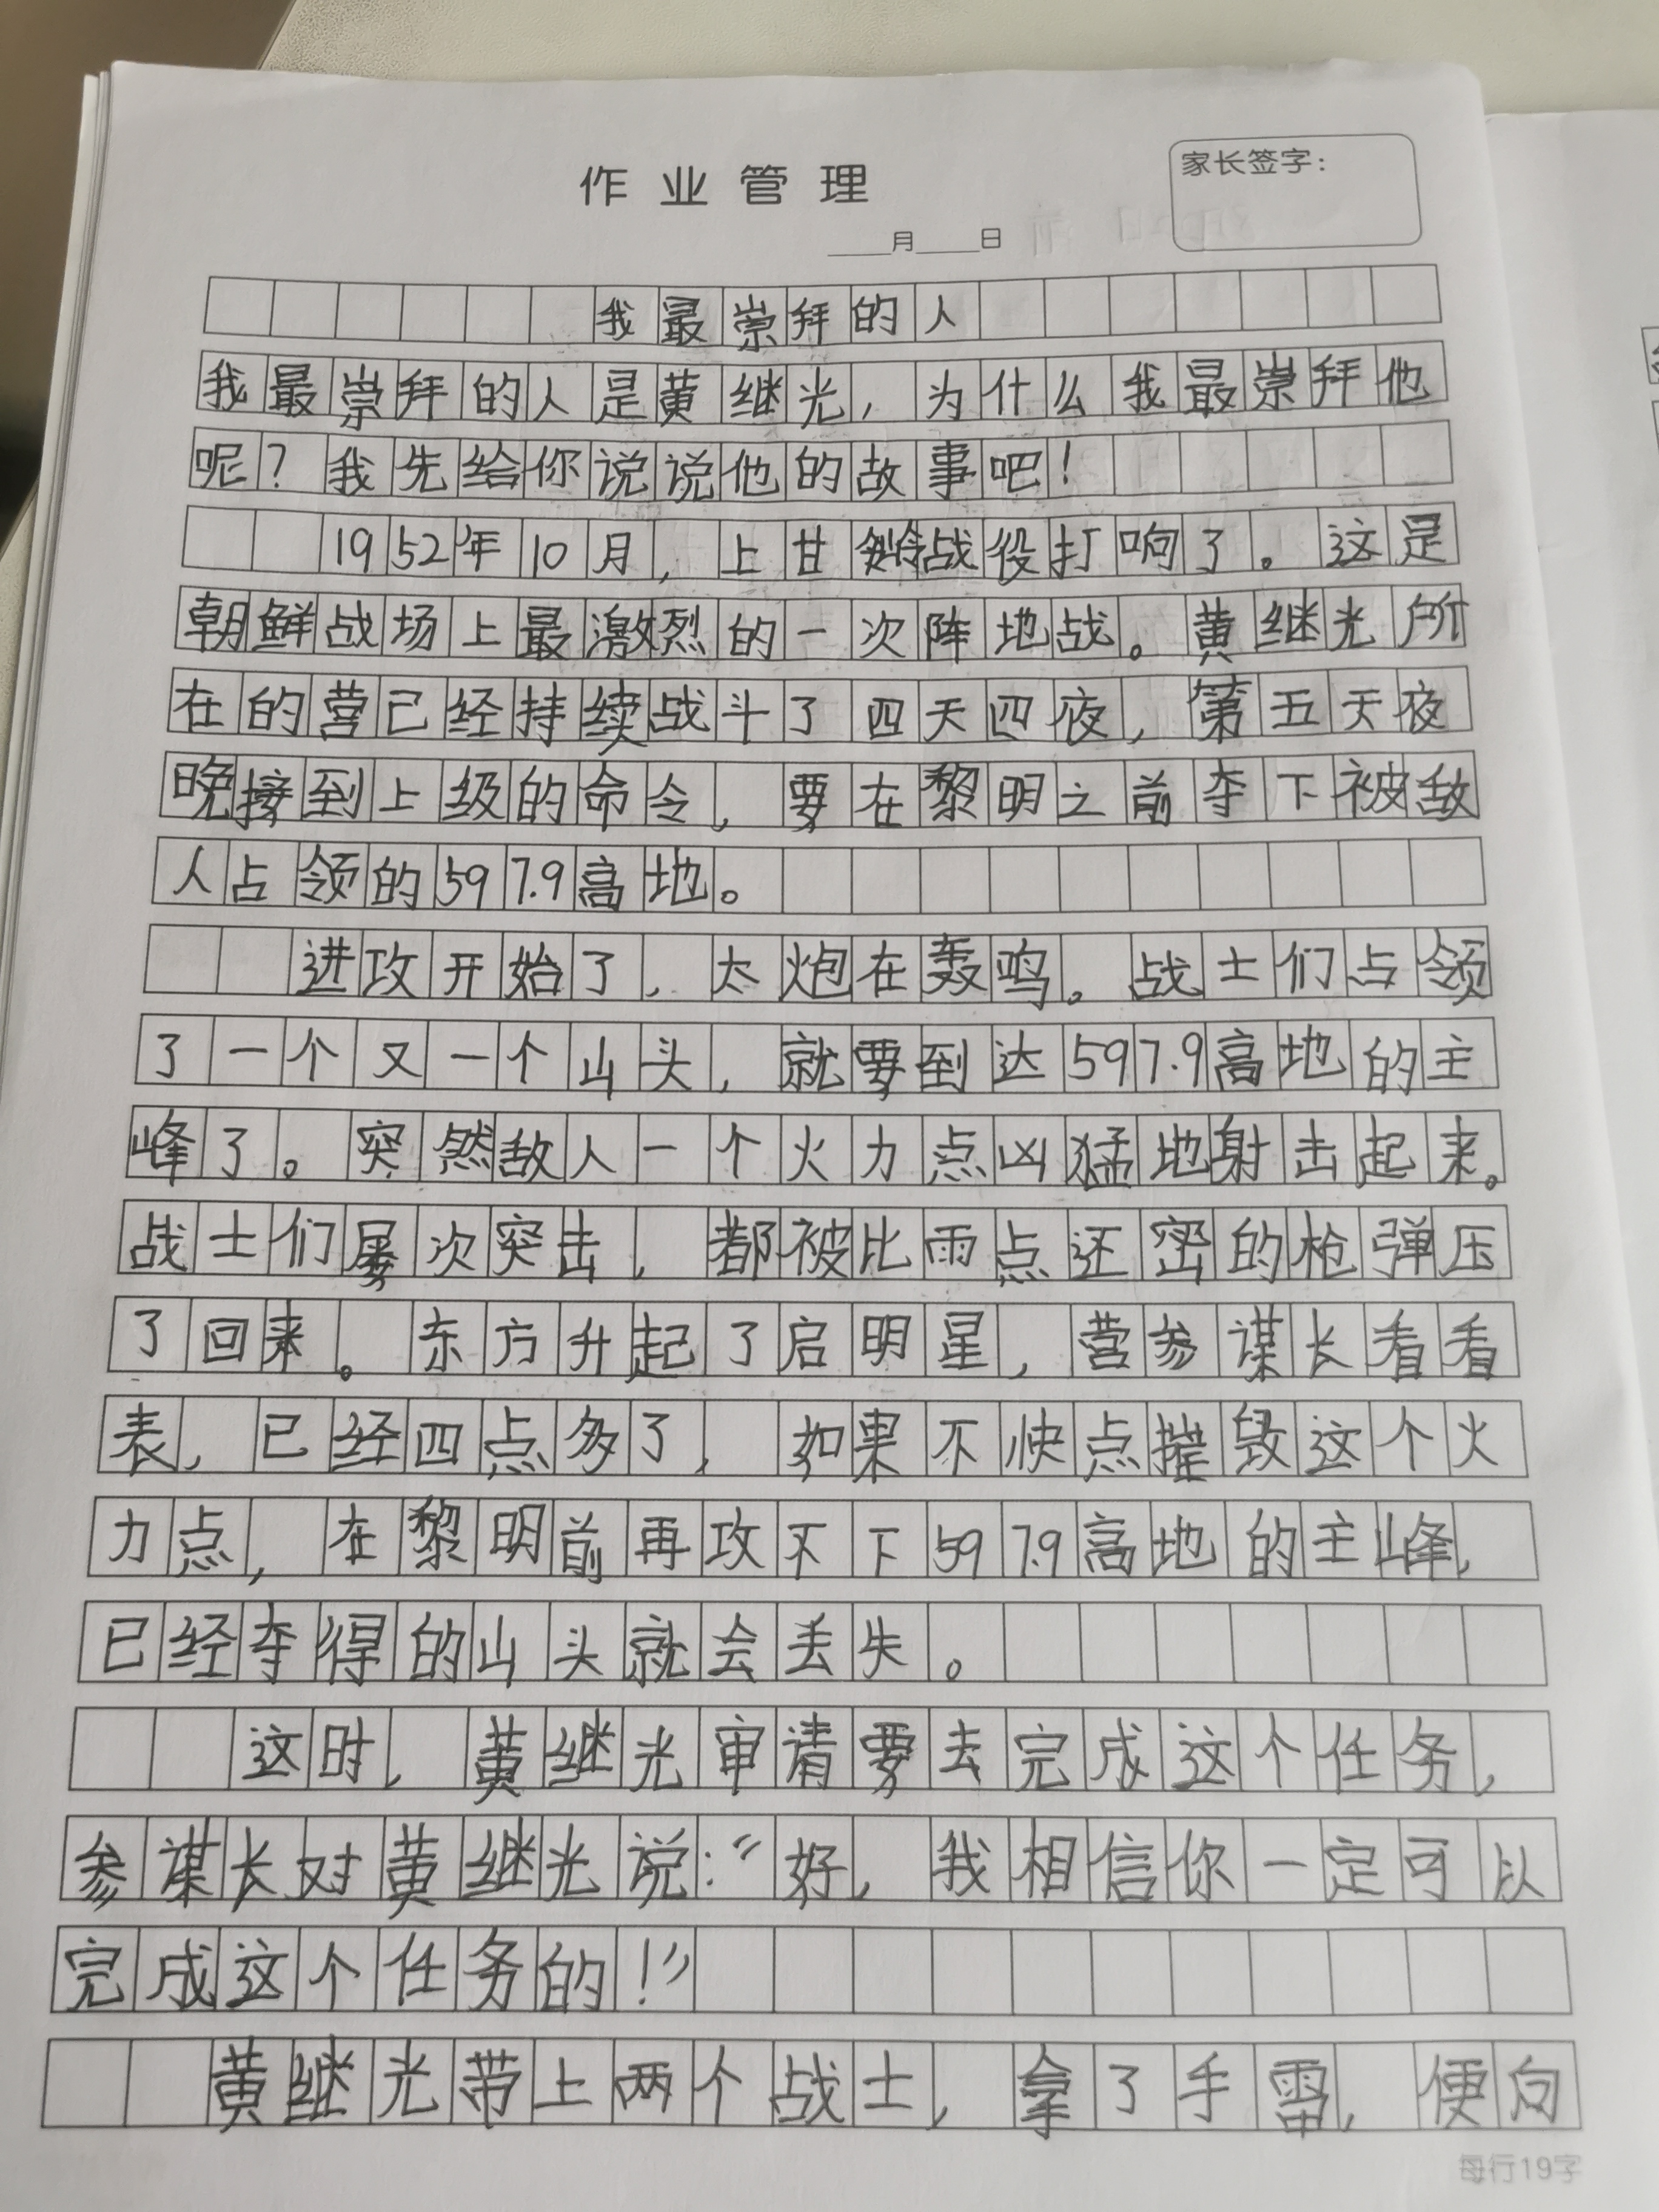 作业管理
家长签字:
月 日
我最崇拜的人
我最崇拜的人是黄继光，为什么我最崇拜他
呢？我先给你说说他的故事吧！
1952年10月，上甘岭战役打响了。这是
朝鲜战场上最激烈的一次阵地战。黄继光所
在的营已经持续战斗了四天四夜，第五天夜
晚接到上级的命令，要在黎明之前夺下被敌
人占领的597.9高地。
进攻开始了，大炮在轰鸣。战士们占领
了一个又一个山头，就要到达597.9高地的主
峰了。突然敌人一个火力点凶猛地射击起来。
战士们屡次突击，都被比雨点还密的枪弹压
了回来。东方升起了启明星，营参谋长看看
表，已经四点多了，如果不快点摧毁这个火
力点，在黎明前再攻不下597.9高地的主峰，
已经夺得的山头就会丢失。
这时，黄继光审请要去完成这个任务，
参谋长对黄继光说：“好，我相信你一定可以
完成这个任务的！”
黄继光带上两个战士，拿了手雷，便向
每行19字